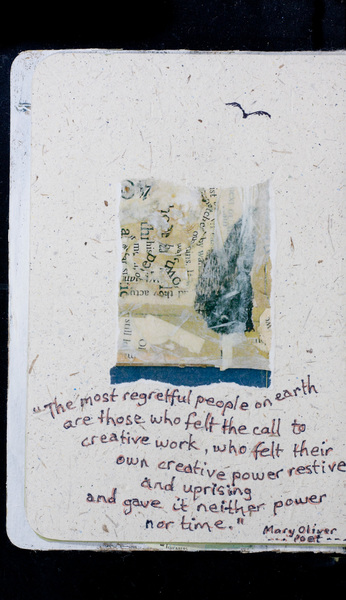 "The most regretful people on earth
are those who felt the call to
creative work, who felt their
own creative power restive
and uprising
and gave it neither power
nor time."
Mary Oliver
poet